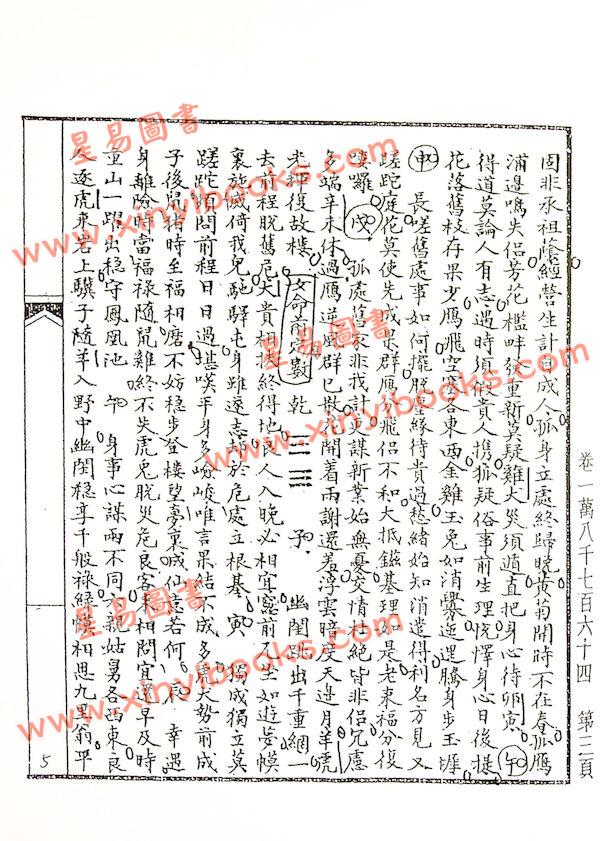 卷一萬八千七百六十四　第二頁
固非承祖蔭經營生計日成人孤身立處終歸晚黃菊開時不在春孤鴈
浦邊鳴失侶芳花檻畔發重新莫疑難大災須遁直把身心待卯寅　午
得道莫論人有志遇時須假貴人携狐疑俗事前生理悅懌身心日後提
花落舊枝存果少鴈飛空塞各東西金雞玉兔如消釁運逞騰身步玉堦
申　長嗟舊處事如何擺脫塵緣待貴過愁緒始知消遣得利名方見又
蹉跎庭花莫使先成果群鴈分飛侶不和大抵鎡基理如是老來福分復
嘍囉　戌　孤處舊來非我計更謀新業始無憂交情杜絕皆非侶冗慮
多端辛未休過鴈逆風群已散花開着雨謝還羞浮雲暗度天邊月羊虎
光輝復故樓　女命前定數　乾　子　幽閨跳出千重網一
去前程脫舊危犬貴相扶終得地良人入晚必相宜窓前又坐如遊夢幙
裏施威倚我兒馳驛屯身雖遠志却於危處立根基　寅　獨成獨立莫
蹉跎須問前程日日過堪嘆平身多險峻唯言果結不成多虎大勢前成
子後鼠猪時至福相磨不妨稳步登樓望夢裏成仙意若何　辰　幸遇
身離險時當福祿隨鼠雞終不失虎兔脫災危良客來相問宜遷早及時
重山一躍出稳守鳳凰池　午　身事心謀兩不同六親姑舅各西東良
人逐虎來岩上驥子隨羊入野中幽閨稳享千般祿綠幙相思九里翁平
5
星易圖書
www.xinyibooks.com
星易圖書
www.xinyibooks.com
星易圖書
www.xinyibooks.com
星易圖書
www.xinyibooks.com